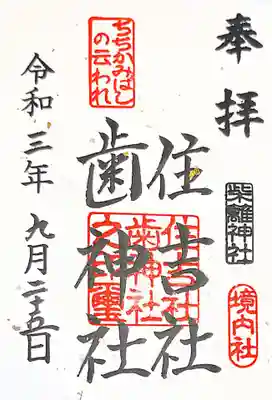 奉拝
柴籬神社
境内社
住吉社
歯神社
住吉社
歯神社
之璽
ちぢかみばし
の云われ
令和三年 九月二十五日